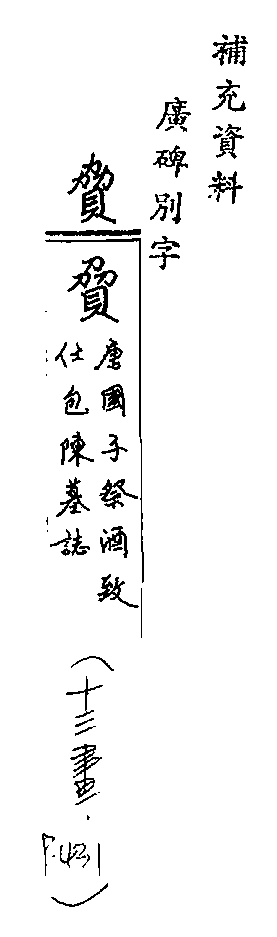 補充資料
廣碑別字
賀
唐國子祭酒致
仕包陳墓誌
(十二畫.
P.431)